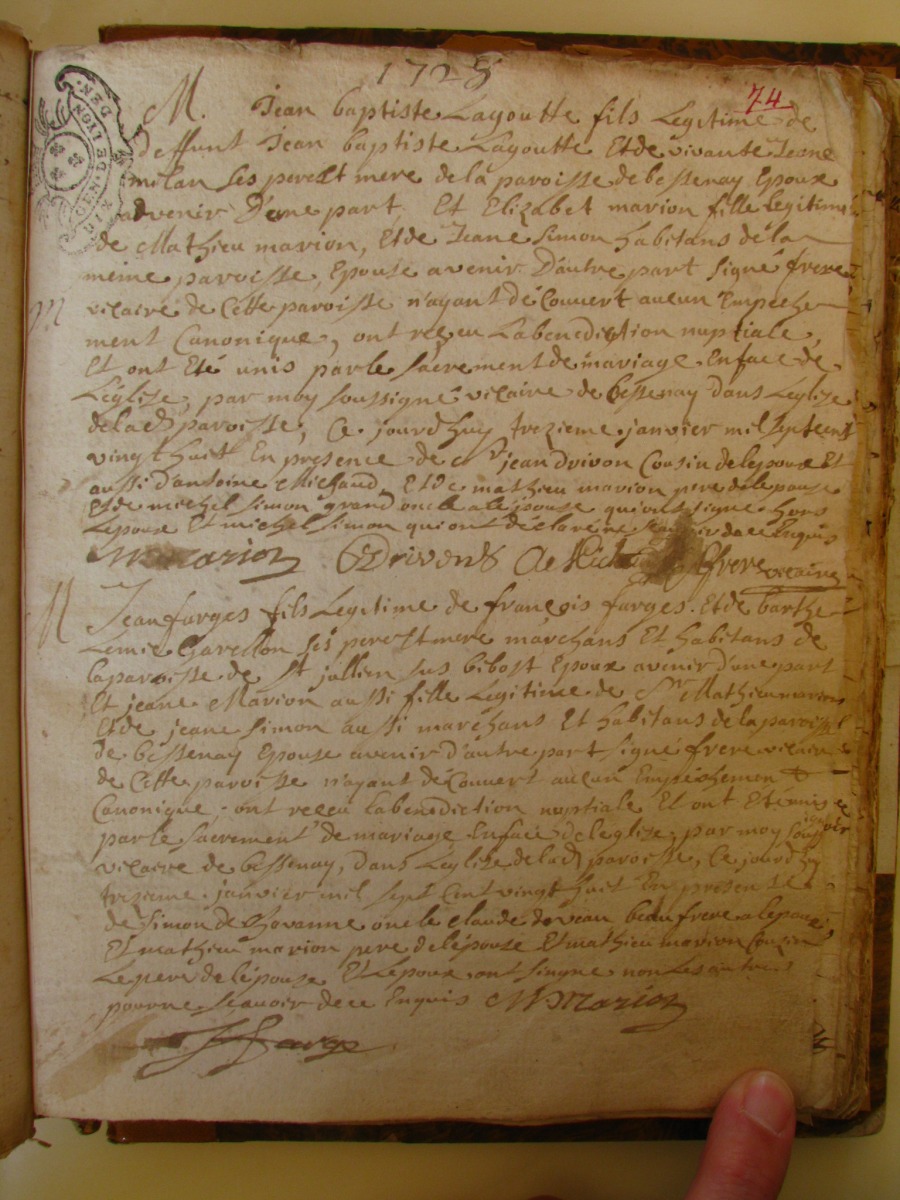 1728
74
GEN. DE LYON
M. Jean baptiste Lagoutte fils Legitime de
deffunt Jean baptiste Lagoutte Et de vivante Jeane
milan ses pere Et mere de la paroisse de bessenay Epoux
advenir D'une part, Et Elizabet marion fille Legitime
de Mathieu marion, Et de Jeane Simon habitans de la
meme paroisse, Epouse avenir D'autre part signé frere
vicaire de Cette paroisse n'ayant découvert aucun Empeche
ment Canonique, ont reçeu La benediction nuptiale,
Et ont Eté unis par le sacrement de mariage En face de
L'église, par moy soussigné vicaire de bessenay dans L'eglise
de lad paroisse, Ce jourdhuy trezieme janvier mil sept cent
vingt huit En presence de Sr jean drivon Cousin de lepoux Et
aussi d'antoine Michaud, Et de mathieu marion pere de lepouse
Et de michel simon grand oncle a lepouse qui ont signé hors
Lepoux Et michel simon qui ont déclaré ne scavoir de ce Enquis
M Marion Drivont frere vicaire
M Jean farges fils Legitime de françois farges. Et de barthe
Lemie Garellon ses pere Et mere marchans Et habitans de
la paroisse de St jullien sus bibost Epoux avenir d'une part
Et jeane Marion aussi fille Legitime de Sr Mathieu marion
Et de jeane simon aussi marchans Et habitans de la paroisse
de bessenay Epouse avenir d'autre part signé frere vicaire
de Cette paroisse n'ayant decouvert aucun Empeschement
Canonique, ont receu la benediction nuptiale Et ont Eté unis
par le sacrement de mariage En face de l'eglise, par moy sousigné
vicaire de bessenay, dans L'eglise de lad paroisse, Ce jourdhuy
trezieme janvier mil sept Cent vingt huit En presence
de Simon de Chavanne oncle Claude beau frere a lepoux,
Et mathieu marion pere de lépouse Et mathieu marion Cousin
Le pere de lépouse Et Lepoux ont singne non Les autres
pour ne scavoir de ce Enquis M Marion
J farge